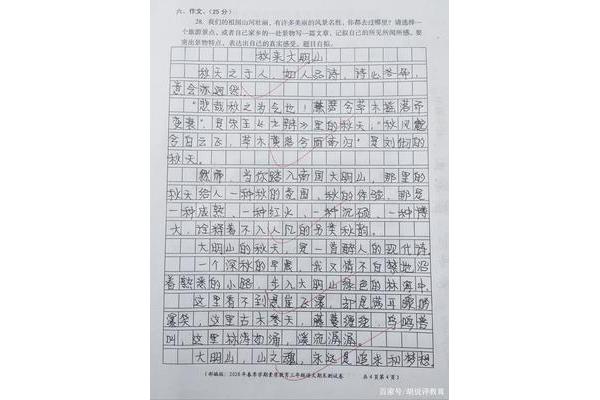 六、作文。（25分）
28. 我们的祖国山河壮丽，有许多美丽的风景名胜，你都去过哪里？请选择一
个旅游景点，或者自己家乡的一处景物写一篇文章，记叙自己的所见所闻所感。要
突出景物特点，表达出自己的真实感受。题目自拟。
秋来大明山
秋天之于人，如人品诗，诗必有师，
意会亦迥然。
“悲哉秋之为气也！萧瑟兮草木摇落而
变衰”是宋玉《九辩》里的秋天；“秋风起
兮白云飞，草木黄落兮雁南归”是刘彻的
秋天。
然而，当你踏入南国大明山，那里的
秋天给人一种秋的氛围，秋的体验，那是
一种成熟、一种红火、一种沉硕、一种博
大，诠释着不入人凡的另类秋韵。
大明山的秋天，是一首醉人的现代诗。
一个深秋的早晨，我又情不自禁地沿
着熟悉的小路，步入大明山绿色的林海中。
这里看不到悬崖飞瀑，却是满耳
爆笑，这里古木参天，藤蔓缠绕，鸟鸣莺
叫，这里林涛汹涌，溪流潺潺。
大明山，山之魂，永远是追求和梦想，
（部编版）2020年春季学期素质教育三年级语文期末测试卷 共4页第4页）
百家号/胡说评教育